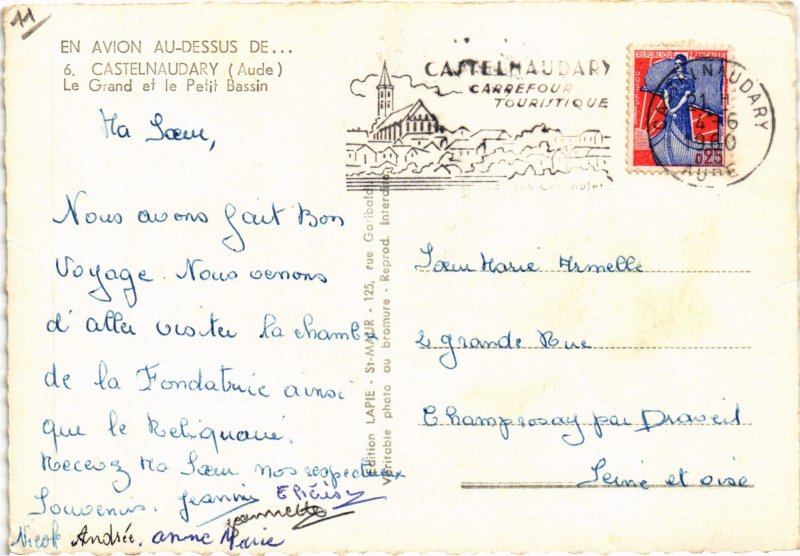 11
EN AVION AU-DESSUS DE...
6. CASTELNAUDARY (Aude)
Le Grand et le Petit Bassin
Ma Sœur,
Nous avons fait Bon
Voyage. Nous venons
d'aller visiter la chambre
de la Fondatrice ainsi
que le Reliquaire.
Recevez Ma Sœur nos respectueux
Souvenirs. Jeannine
Jeannette
Nicole Andrée. Anne Marie
Edition LAPIE - St-MAUR - 125, rue Garibaldi
Véritable photo au bromure - Reprod. Interdite
CASTELNAUDARY
CARREFOUR
TOURISTIQUE
son Cassoulet
REPUBLIQUE FRANÇAISE
POSTES
0,25
CASTELNAUDARY
21 H
4-6
1960
AUDE
Sœur Marie Armelle
2 grande Rue
Champrosay par Draveil
Seine et oise